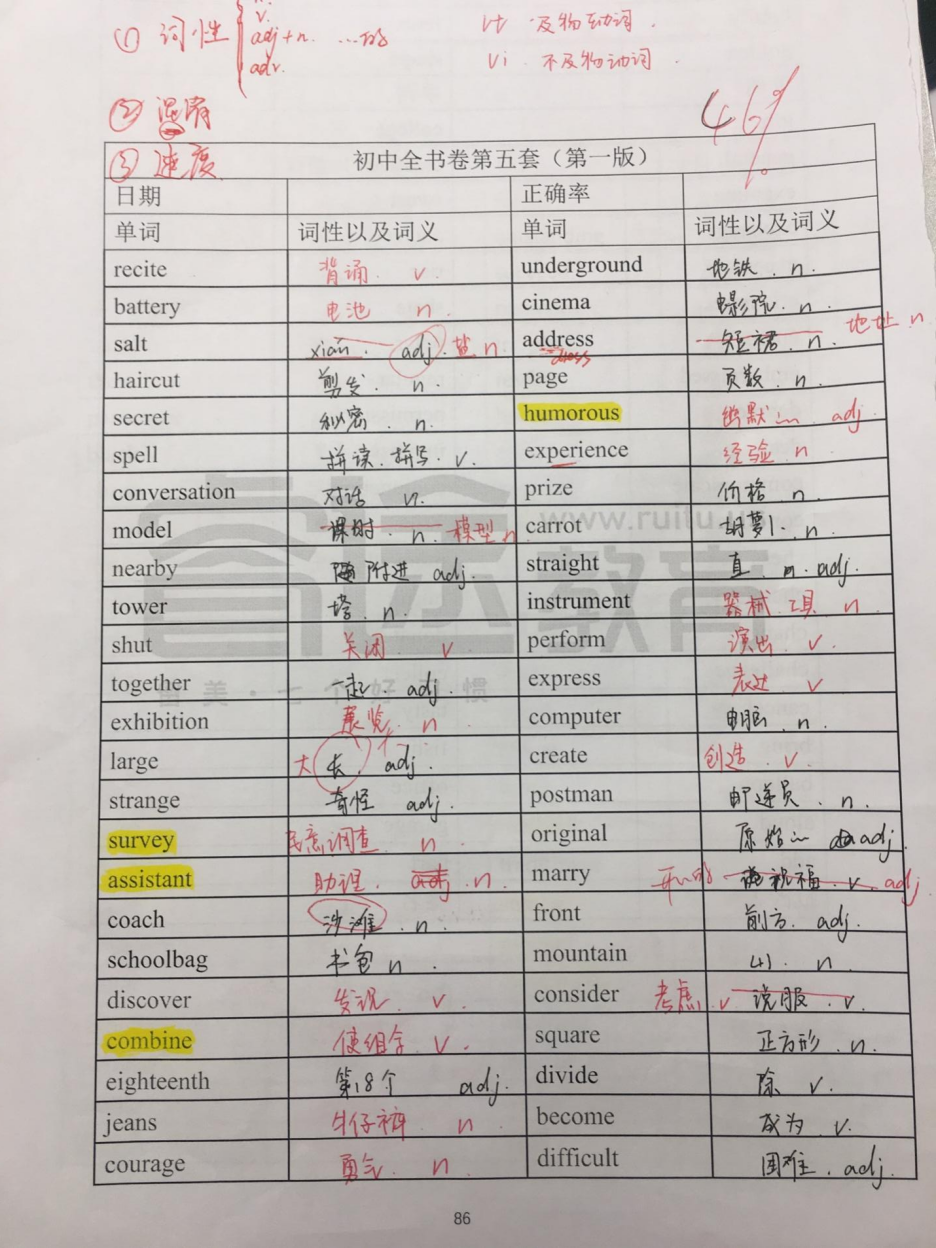 n.
v.
① 词性 adj+n. …的
adv.
vt 及物动词.
vi. 不及物动词.
② 漏背
46%
③ 速度
初中全书卷第五套（第一版）
日期 正确率
单词 词性以及词义 单词 词性以及词义
recite 背诵. v underground 地铁. n.
battery 电池 n cinema 电影院. n.
salt xian. adj. 盐 n address 短裙. n. 地址 n
dress
haircut 剪发. n. page 页数. n.
secret 秘密. n. humorous 幽默… adj.
spell 拼读. 拼写. v. experience 经验 n
conversation 对话 n. prize 价格 n.
model 课时. n. 模型 n carrot 胡萝卜. n.
nearby 附进 adj. straight 直. adj.
tower 塔. n. instrument 器械. 工具 n
shut 关闭 v perform 演出. v.
together 一起. adj. express 表达 v
exhibition 展览. n computer 电脑. n.
large 大 长. adj. create 创造. v.
strange 奇怪 adj. postman 邮递员. n.
survey 民意调查 n original 原始… adj.
assistant 助理. adj. n. marry 开心的 祝福. v. adj.
coach 沙滩. n. front 前方. adj.
schoolbag 书包 n. mountain 山. n.
discover 发现 v. consider 考虑. v 说服. v.
combine 使组合 v. square 正方形. n.
eighteenth 第18个 adj. divide 除 v.
jeans 牛仔裤 n become 成为 v.
courage 勇气. n difficult 困难. adj.
www.ruitu.
育途教育
美·七个好习惯
86